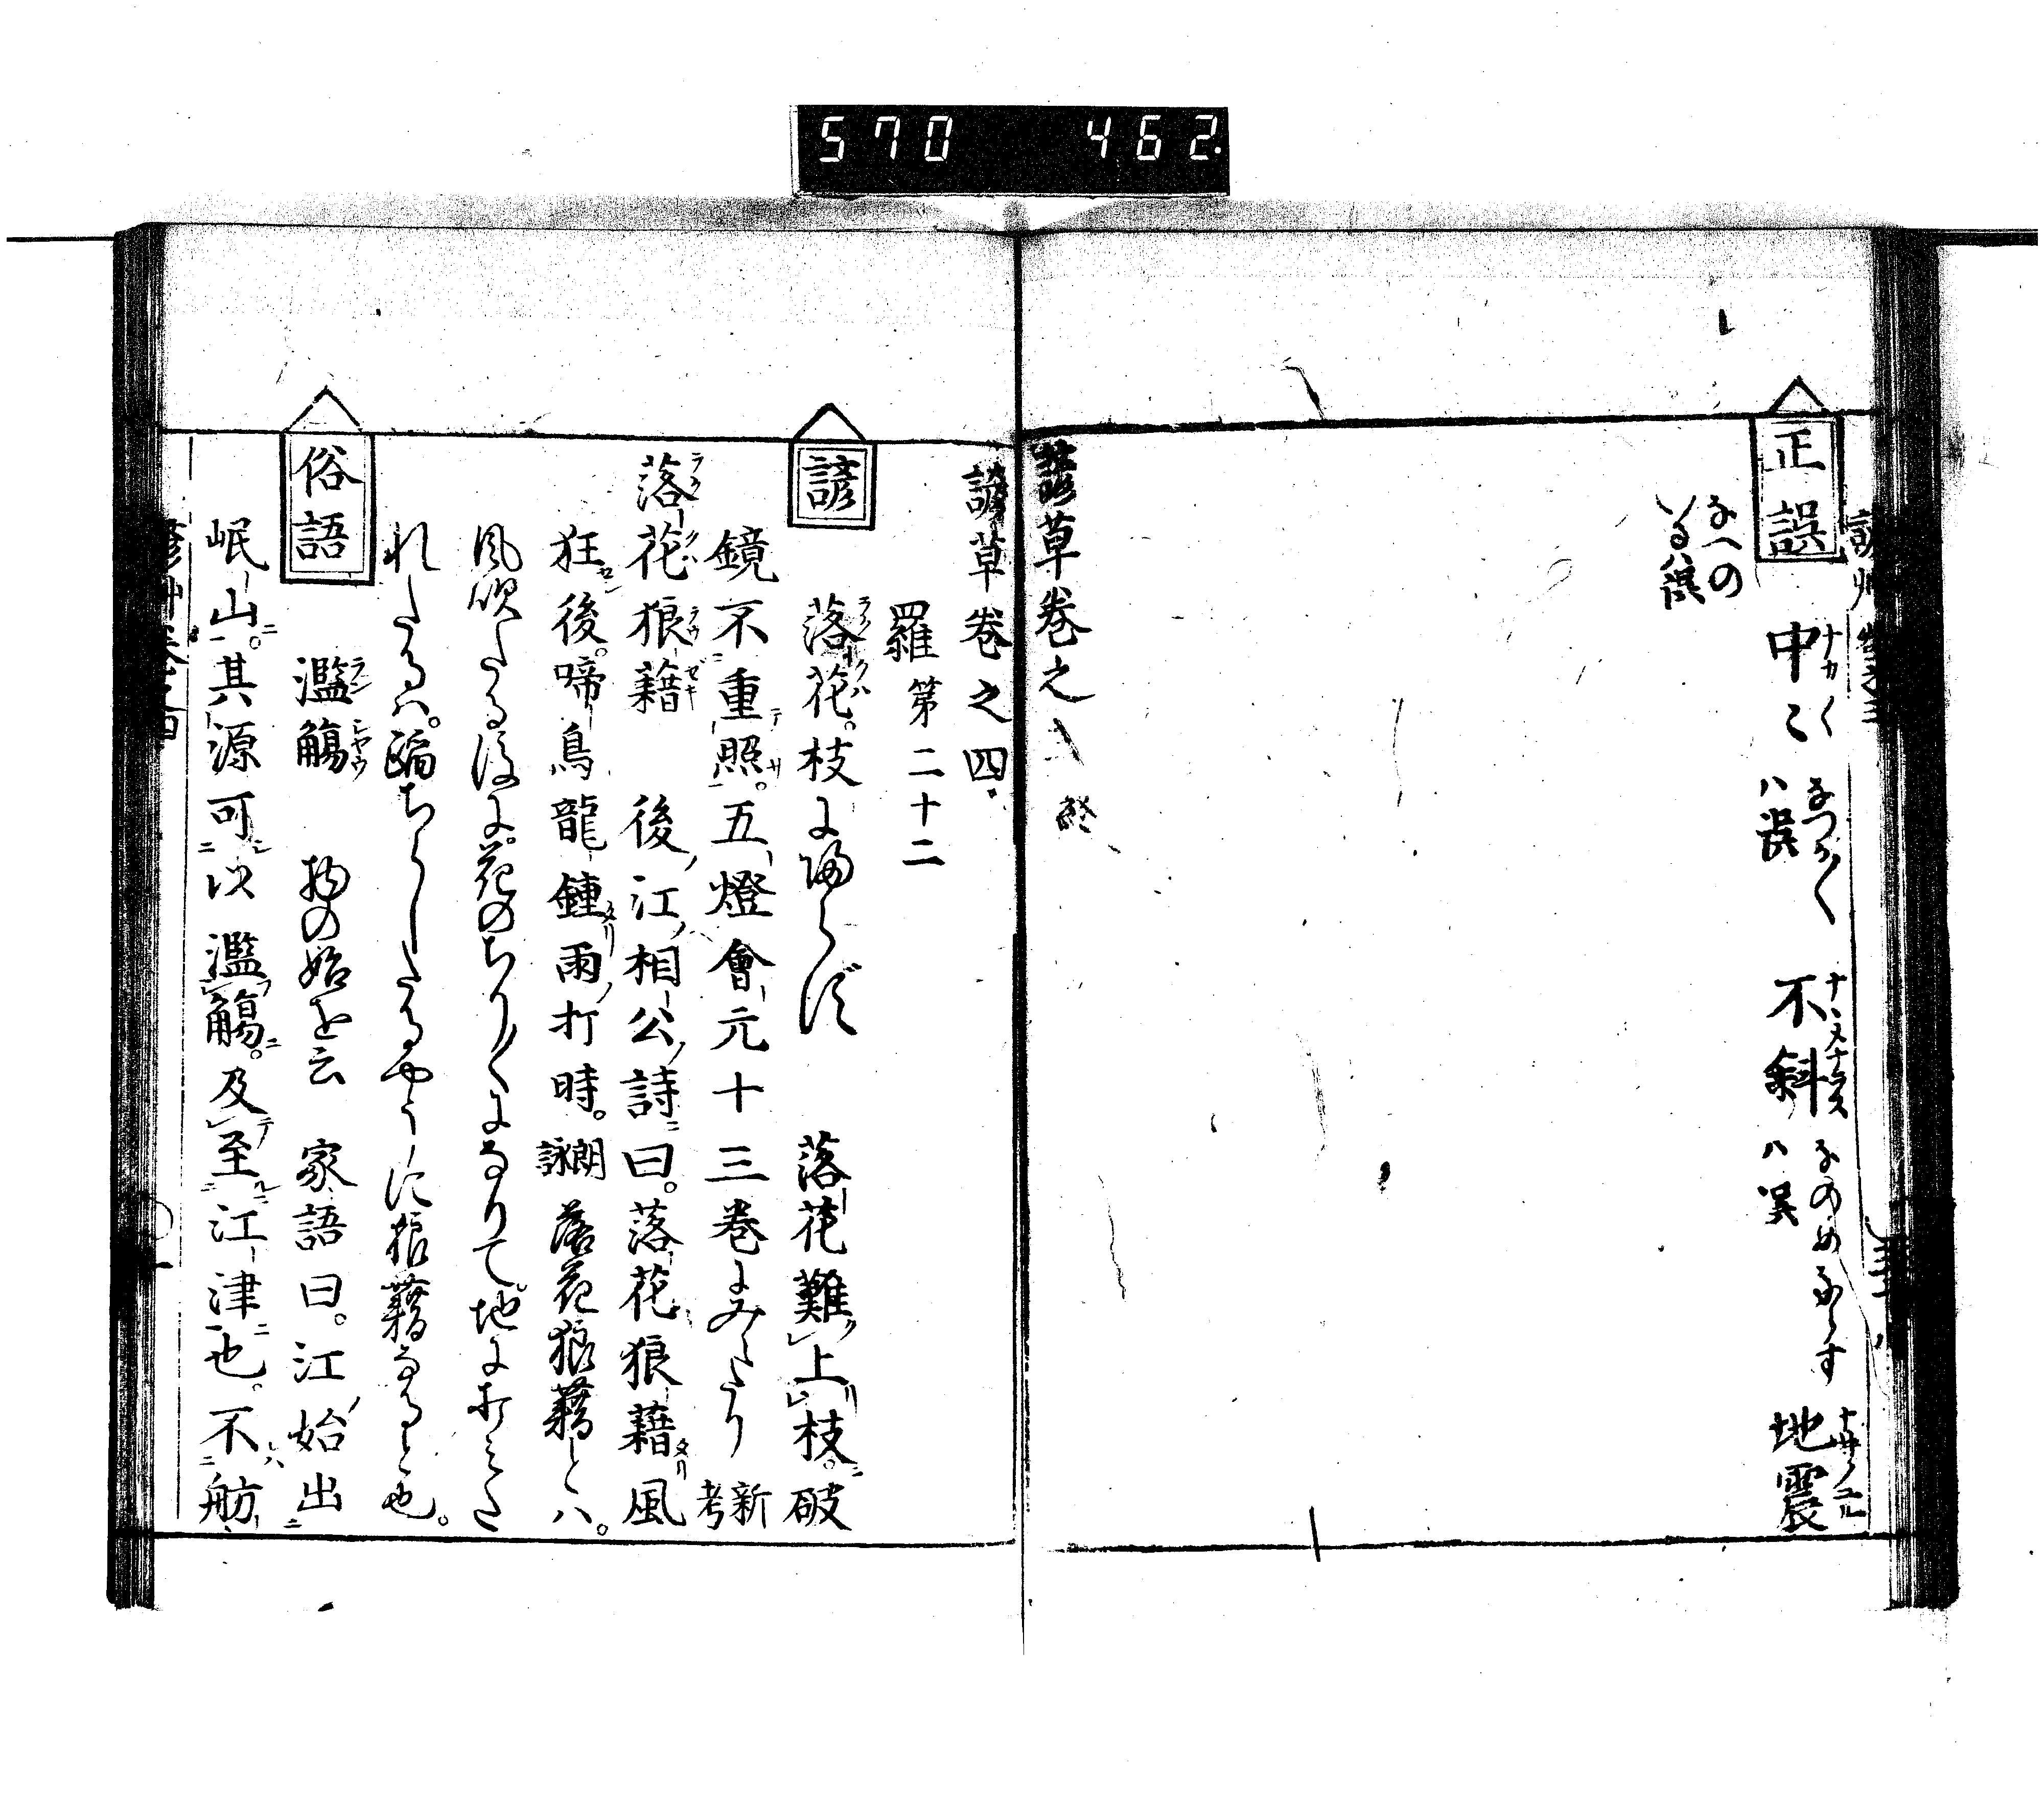 570 462
正誤
中〻 なつかく ハ誤 不斜 なのめならす ハ誤 地震
なへの いるハ誤
諺草巻之 終
諺草巻之四
羅 第二十二
諺 落花枝に帰らず 落花難上枝破
鏡不重照。五燈會元十三巻にみえたり 新考
落花狼藉 後江相公詩曰。落花狼藉風
狂後。啼鳥龍鍾雨打時。朗詠 落花狼藉とハ。
風吹たる後に。花のちり〳〵になりて。地にみた
れたるハ。踏ちらしたるやうに狼藉なると也。
俗語 濫觴 物の始を云 家語曰。江始出
岷山。其源可以濫觴。及至江津也。不舫